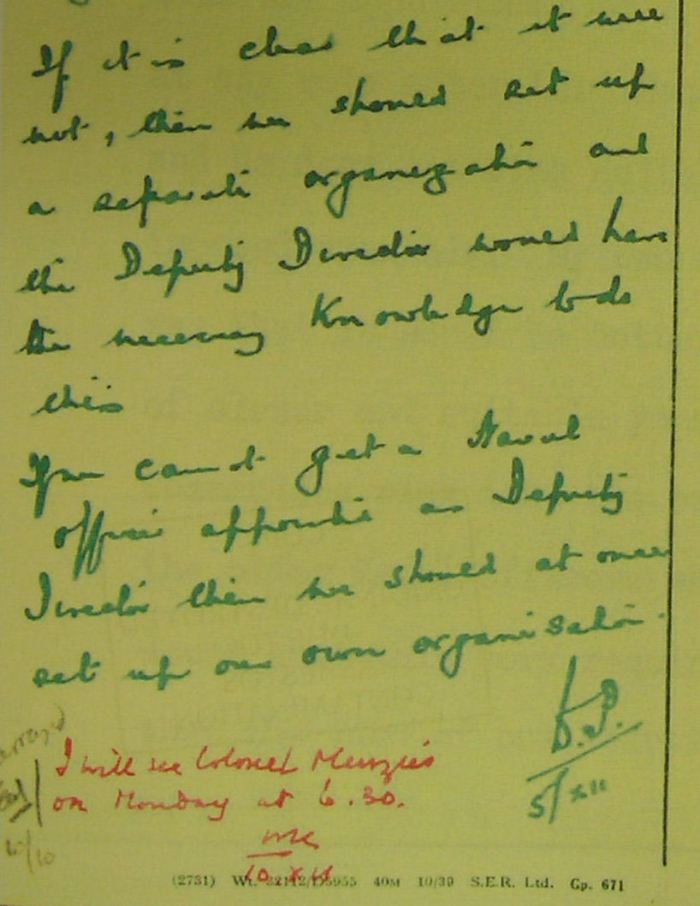 If it is clear that it were
not, then we should set up
a separate organization and
the Deputy Director would have
the necessary Knowledge to do
this
If we cannot get a Naval
officer appointed as Deputy
Director then we should at once
set up our own organisation.
D.P.
5/XII
arranged
I will see Colonel Menzies
on Monday at 6.30.
10 XII
(2731) Wt. 32112/D5955 40M 10/39 S.E.R. Ltd. Gp. 671